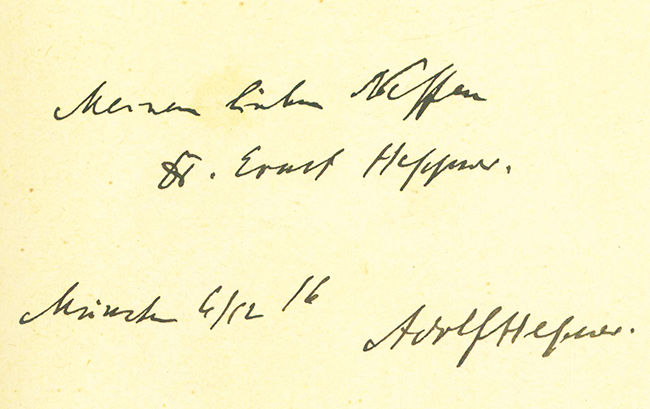 Meinem lieben Neffen
Dr. Ernst Heppner.
München 6/12 16
Adolf Hepner.